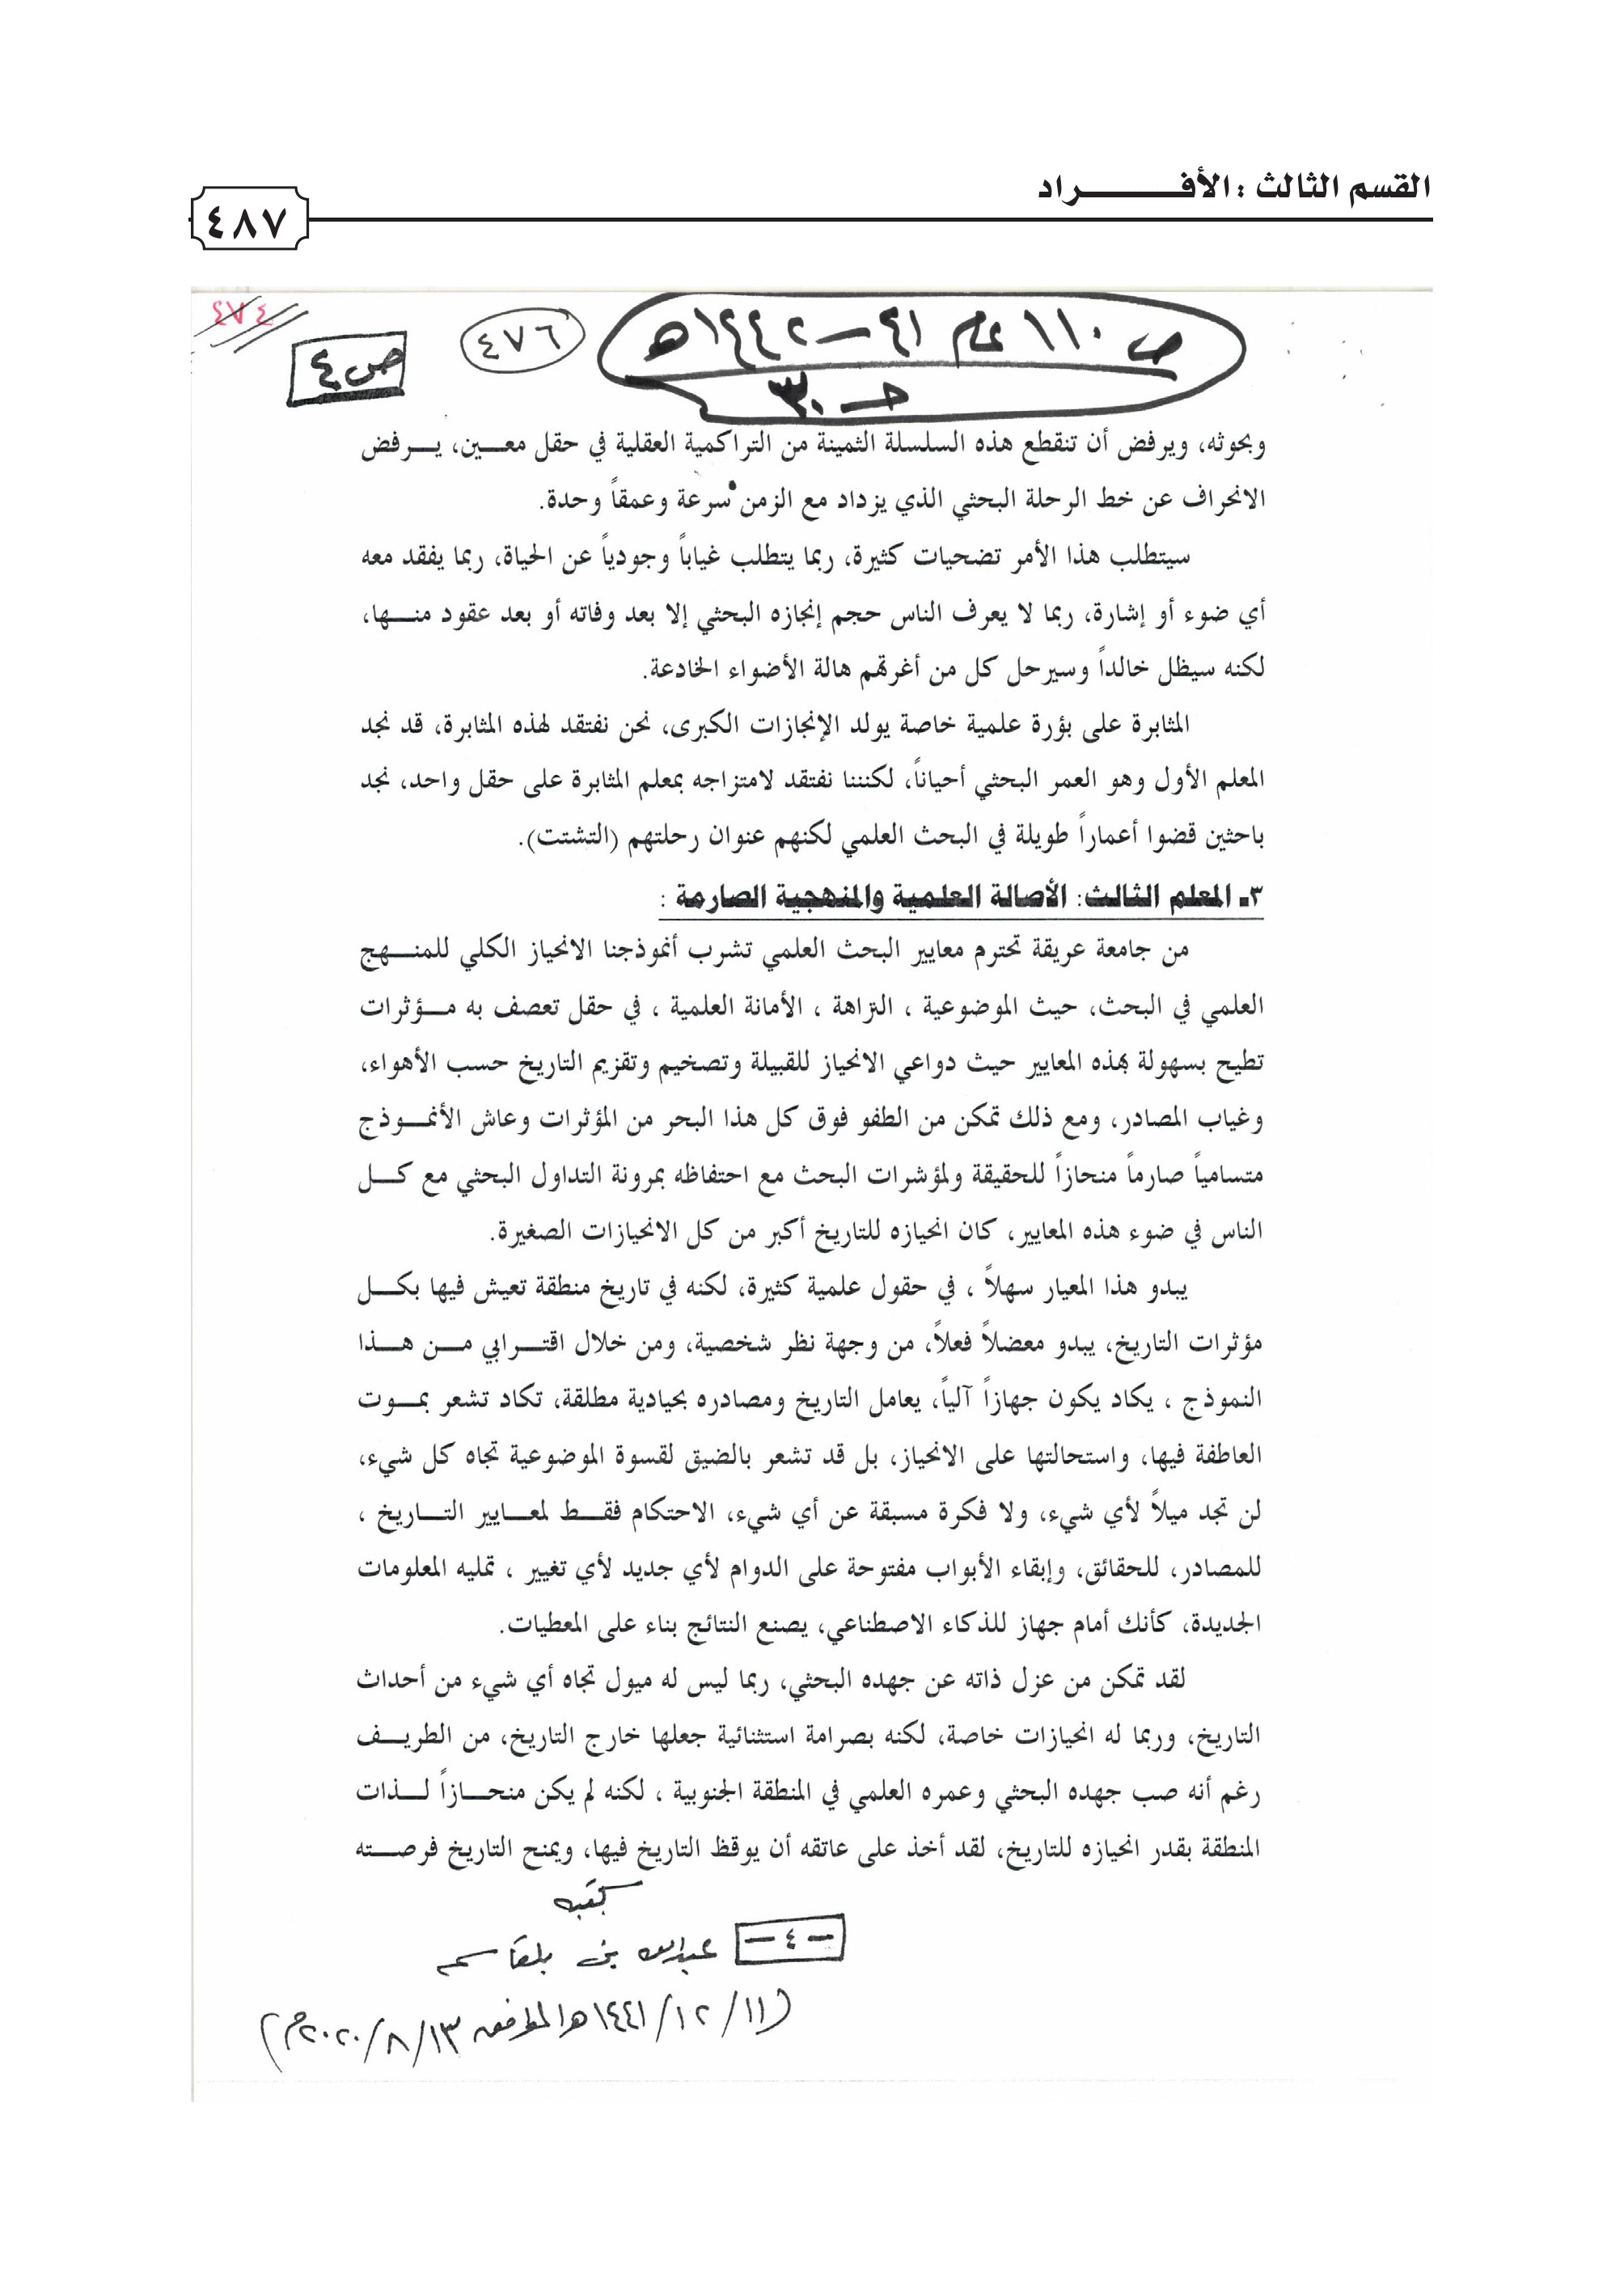 القسم الثالث : الأفـــــــــراد
٤٨٧
٤٧٤
ص ١١٠ عام ٤١ – ١٤٤٢هـ
حـ ٣٠
٤٧٦
ص ٤
وبحوثه، ويرفض أن تنقطع هذه السلسلة الثمينة من التراكمية العقلية في حقل معـــين، يـــرفض
الانحراف عن خط الرحلة البحثي الذي يزداد مع الزمن سرعة وعمقاً وحدة.
سيتطلب هذا الأمر تضحيات كثيرة، ربما يتطلب غياباً وجودياً عن الحياة، ربما يفقد معه
أي ضوء أو إشارة، ربما لا يعرف الناس حجم إنجازه البحثي إلا بعد وفاته أو بعد عقود منـــها،
لكنه سيظل خالداً وسيرحل كل من أغرقم هالة الأضواء الخادعة.
المثابرة على بؤرة علمية خاصة يولد الإنجازات الكبرى، نحن نفتقد لهذه المثابرة، قد نجد
المعلم الأول وهو العمر البحثي أحياناً، لكنننا نفتقد لامتزاجه بمعلم المثابرة على حقل واحد، نجد
باحثين قضوا أعماراً طويلة في البحث العلمي لكنهم عنوان رحلتهم (التشتت).
٣ـ المعلم الثالث: الأصالة العلمية والمنهجية الصارمة :
من جامعة عريقة تحترم معايير البحث العلمي تشرب أنموذجنا الانحياز الكلي للمنـــهج
العلمي في البحث، حيث الموضوعية ، التزاهة ، الأمانة العلمية ، في حقل تعصف به مـــؤثرات
تطيح بسهولة بهذه المعايير حيث دواعي الانحياز للقبيلة وتصخيم وتقزيم التاريخ حسب الأهواء،
وغياب المصادر، ومع ذلك تمكن من الطفو فوق كل هذا البحر من المؤثرات وعاش الأنمـــوذج
متسامياً صارماً منحازاً للحقيقة ولمؤشرات البحث مع احتفاظه بمرونة التداول البحثي مع كـــل
الناس في ضوء هذه المعايير، كان انحيازه للتاريخ أكبر من كل الانحيازات الصغيرة.
يبدو هذا المعيار سهلاً ، في حقول علمية كثيرة، لكنه في تاريخ منطقة تعيش فيها بكـــل
مؤثرات التاريخ، يبدو معضلاً فعلاً، من وجهة نظر شخصية، ومن خلال اقتـــرابي مـــن هـــذا
النموذج ، يكاد يكون جهازاً آلياً، يعامل التاريخ ومصادره بحيادية مطلقة، تكاد تشعر بمـــوت
العاطفة فيها، واستحالتها على الانحياز، بل قد تشعر بالضيق لقسوة الموضوعية تجاه كل شيء،
لن تجد ميلاً لأي شيء، ولا فكرة مسبقة عن أي شيء، الاحتكام فقـــط لمعـــايير التـــاريخ ،
للمصادر، للحقائق، وإبقاء الأبواب مفتوحة على الدوام لأي جديد لأي تغيير ، تمليه المعلومات
الجديدة، كأنك أمام جهاز للذكاء الاصطناعي، يصنع النتائج بناء على المعطيات.
لقد تمكن من عزل ذاته عن جهده البحثي، ربما ليس له ميول تجاه أي شيء من أحداث
التاريخ، وربما له انحيازات خاصة، لكنه بصرامة استثنائية جعلها خارج التاريخ، من الطريـــف
رغم أنه صب جهده البحثي وعمره العلمي في المنطقة الجنوبية ، لكنه لم يكن منحـــازاً لـــذات
المنطقة بقدر انحيازه للتاريخ، لقد أخذ على عاتقه أن يوقظ التاريخ فيها، ويمنح التاريخ فرصـــته
كتبه
– ٤ –
عبدالله بن بلقاسم
(١١/ ١٢ /١٤٤١هـ الموافق ١٣/ ٨ /٢٠٢٠م)